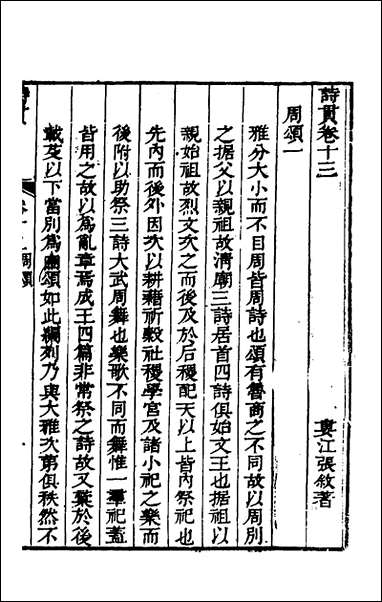 詩貫卷十三
婁江張敘著
周頌一
雅分大小而不目周皆周詩也頌有魯商之不同故以周別
之据父以親祖故清廟三詩居首四詩俱始文王也据祖以
親始祖故烈文次之而後及於后稷配天以上皆內祭祀也
先內而後外因次以耕藉祈穀社稷學宮及諸小祀之樂而
後附以助祭三詩大武周舞也樂歌不同而舞惟一羣祀蓋
皆用之故以為亂章焉成王四篇非常祭之詩故又彙於後
載芟以下當別為豳頌如此編列乃與大雅次第俱秩然不
周頌